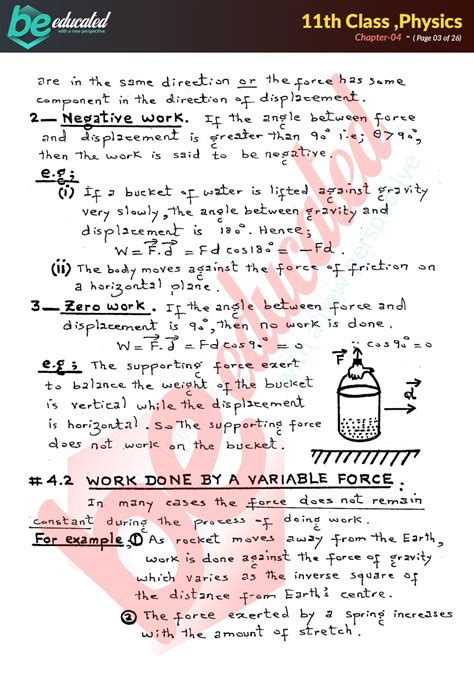 be educated
with a new perspective
11th Class ,Physics
Chapter-04 - ( Page 03 of 26)
are in the same direction or the force has some
component in the direction of displacement.
2— Negative work. If the angle between force
and displacement is greater than 90° i.e; θ>90°,
then the work is said to be negative.
e.g;
(i) If a bucket of water is lifted against gravity
very slowly, the angle between gravity and
displacement is 180°. Hence;
W = F⃗.d⃗ = Fd cos180° = -Fd.
(ii) The body moves against the force of friction on
a horizontal plane.
3— Zero work. If the angle between force and
displacement is 90°, then no work is done.
W = F⃗.d⃗ = Fd cos90° = 0 ∵ cos90° = 0
e.g; The supporting force exert
to balance the weight of the bucket
is vertical while the displacement
is horizontal. So the supporting force
does not work on the bucket.
F⃗
d⃗
# 4.2 WORK DONE BY A VARIABLE FORCE:
In many cases the force does not remain
constant during the process of doing work.
For example, ① As rocket moves away from the Earth,
work is done against the force of gravity
which varies as the inverse square of
the distance from Earth's centre.
② The force exerted by a spring increases
with the amount of stretch.
be educated
with a new perspective